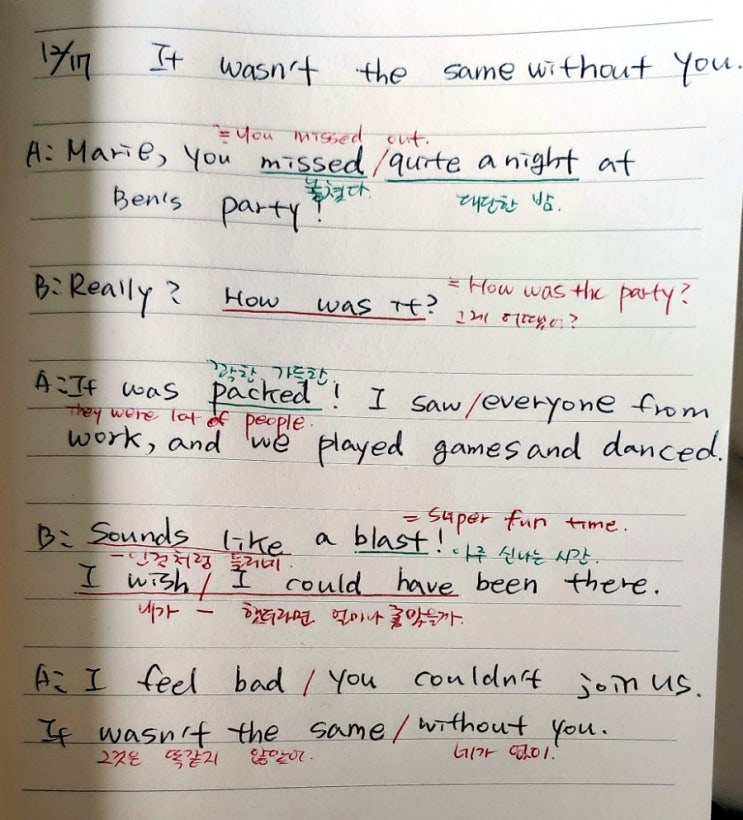 12/17 It wasn't the same without you.
= you missed out.
A: Marie, you missed / quite a night at
놓쳤다. 대단한 밤.
Ben's party!
B: Really? How was it? = How was the party?
그게 어땠어?
꽉찬 가득한
A: It was packed! I saw / everyone from
They were lot of people.
work, and we played games and danced.
= super fun time.
B: Sounds like a blast! 아주 신나는 시간.
– 인것처럼 들리네.
I wish / I could have been there.
내가 – 했더라면 얼마나 좋았을까.
A: I feel bad / you couldn't join us.
It wasn't the same / without you.
그것은 똑같지 않았어. 네가 없이.